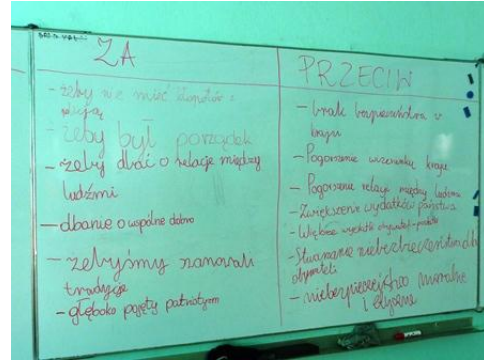 ZA
- żeby nie mieć kłopotów z
- żeby był porządek
- żeby dbać o relacje między
ludźmi
- dbanie o wspólne dobro
- żebyśmy szanowali
tradycje
- głęboko pojęty patriotyzm
PRZECIW
- brak bezpieczeństwa w
kraju
- Pogorszenie wizerunku kraju
- Pogorszenie relacji między ludźmi
- Zwiększenie wydatków państwa
- Większe wydatki obywateli -
- Stwarzanie niebezpieczeństwa dla
obywateli
- niebezpieczeństwo moralne
i etyczne